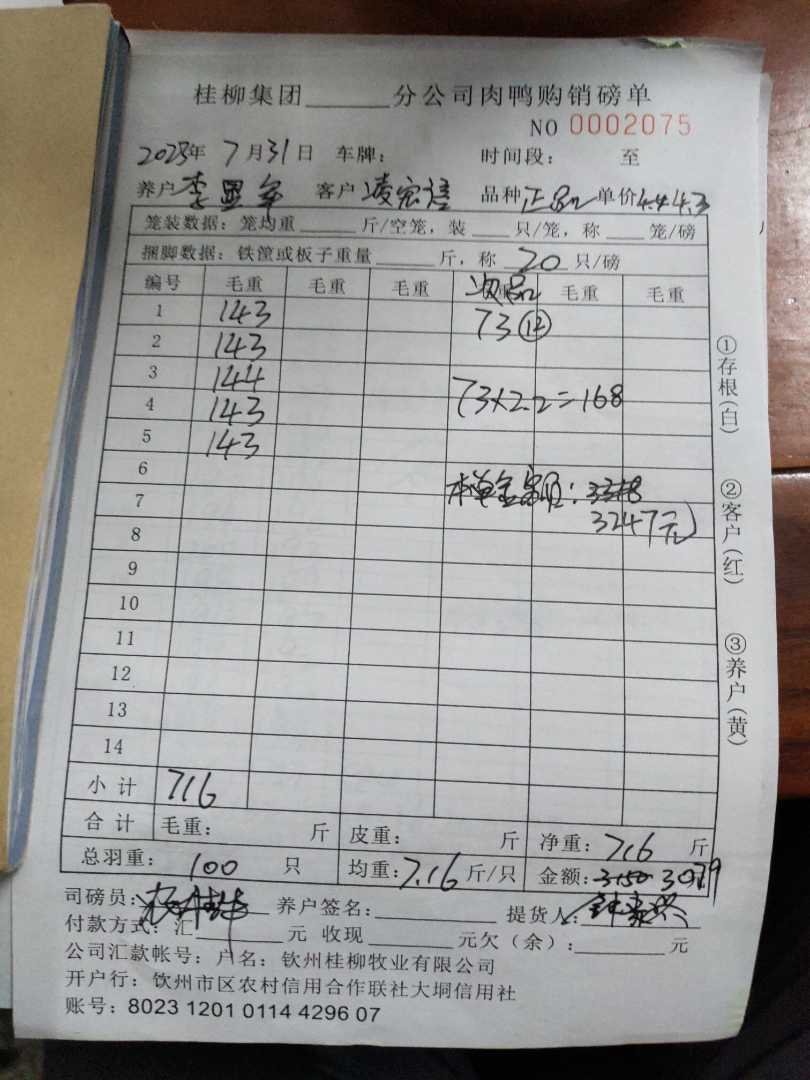 桂柳集团______分公司肉鸭购销磅单
NO 0002075
2023年 7月31日 车牌： 时间段： 至
养户 李显年 客户 凌宏信 品种 正品 单价 4.4 4.3
笼装数据：笼均重____斤/空笼，装___只/笼，称___笼/磅
捆脚数据：铁筐或板子重量____斤，称 20 只/磅
编号 毛重 毛重 毛重 次品 毛重 毛重
1 143 73 ⑫
2 143
3 144
4 143 73×2.2=168
5 143
6
7 本单金额：3318
8 3247元
9
10
11
12
13
14
小计 716
合计 毛重： 斤 皮重： 斤 净重：716 斤
总羽重：100 只 均重：7.16 斤/只 金额：3150 3079
司磅员： 养户签名： 提货人：
付款方式：汇______元 收现______元欠（余）：______元
公司汇款帐号：户名：钦州桂柳牧业有限公司
开户行：钦州市区农村信用合作联社大垌信用社
账号：8023 1201 0114 4296 07
①存根（白）
②客户（红）
③养户（黄）